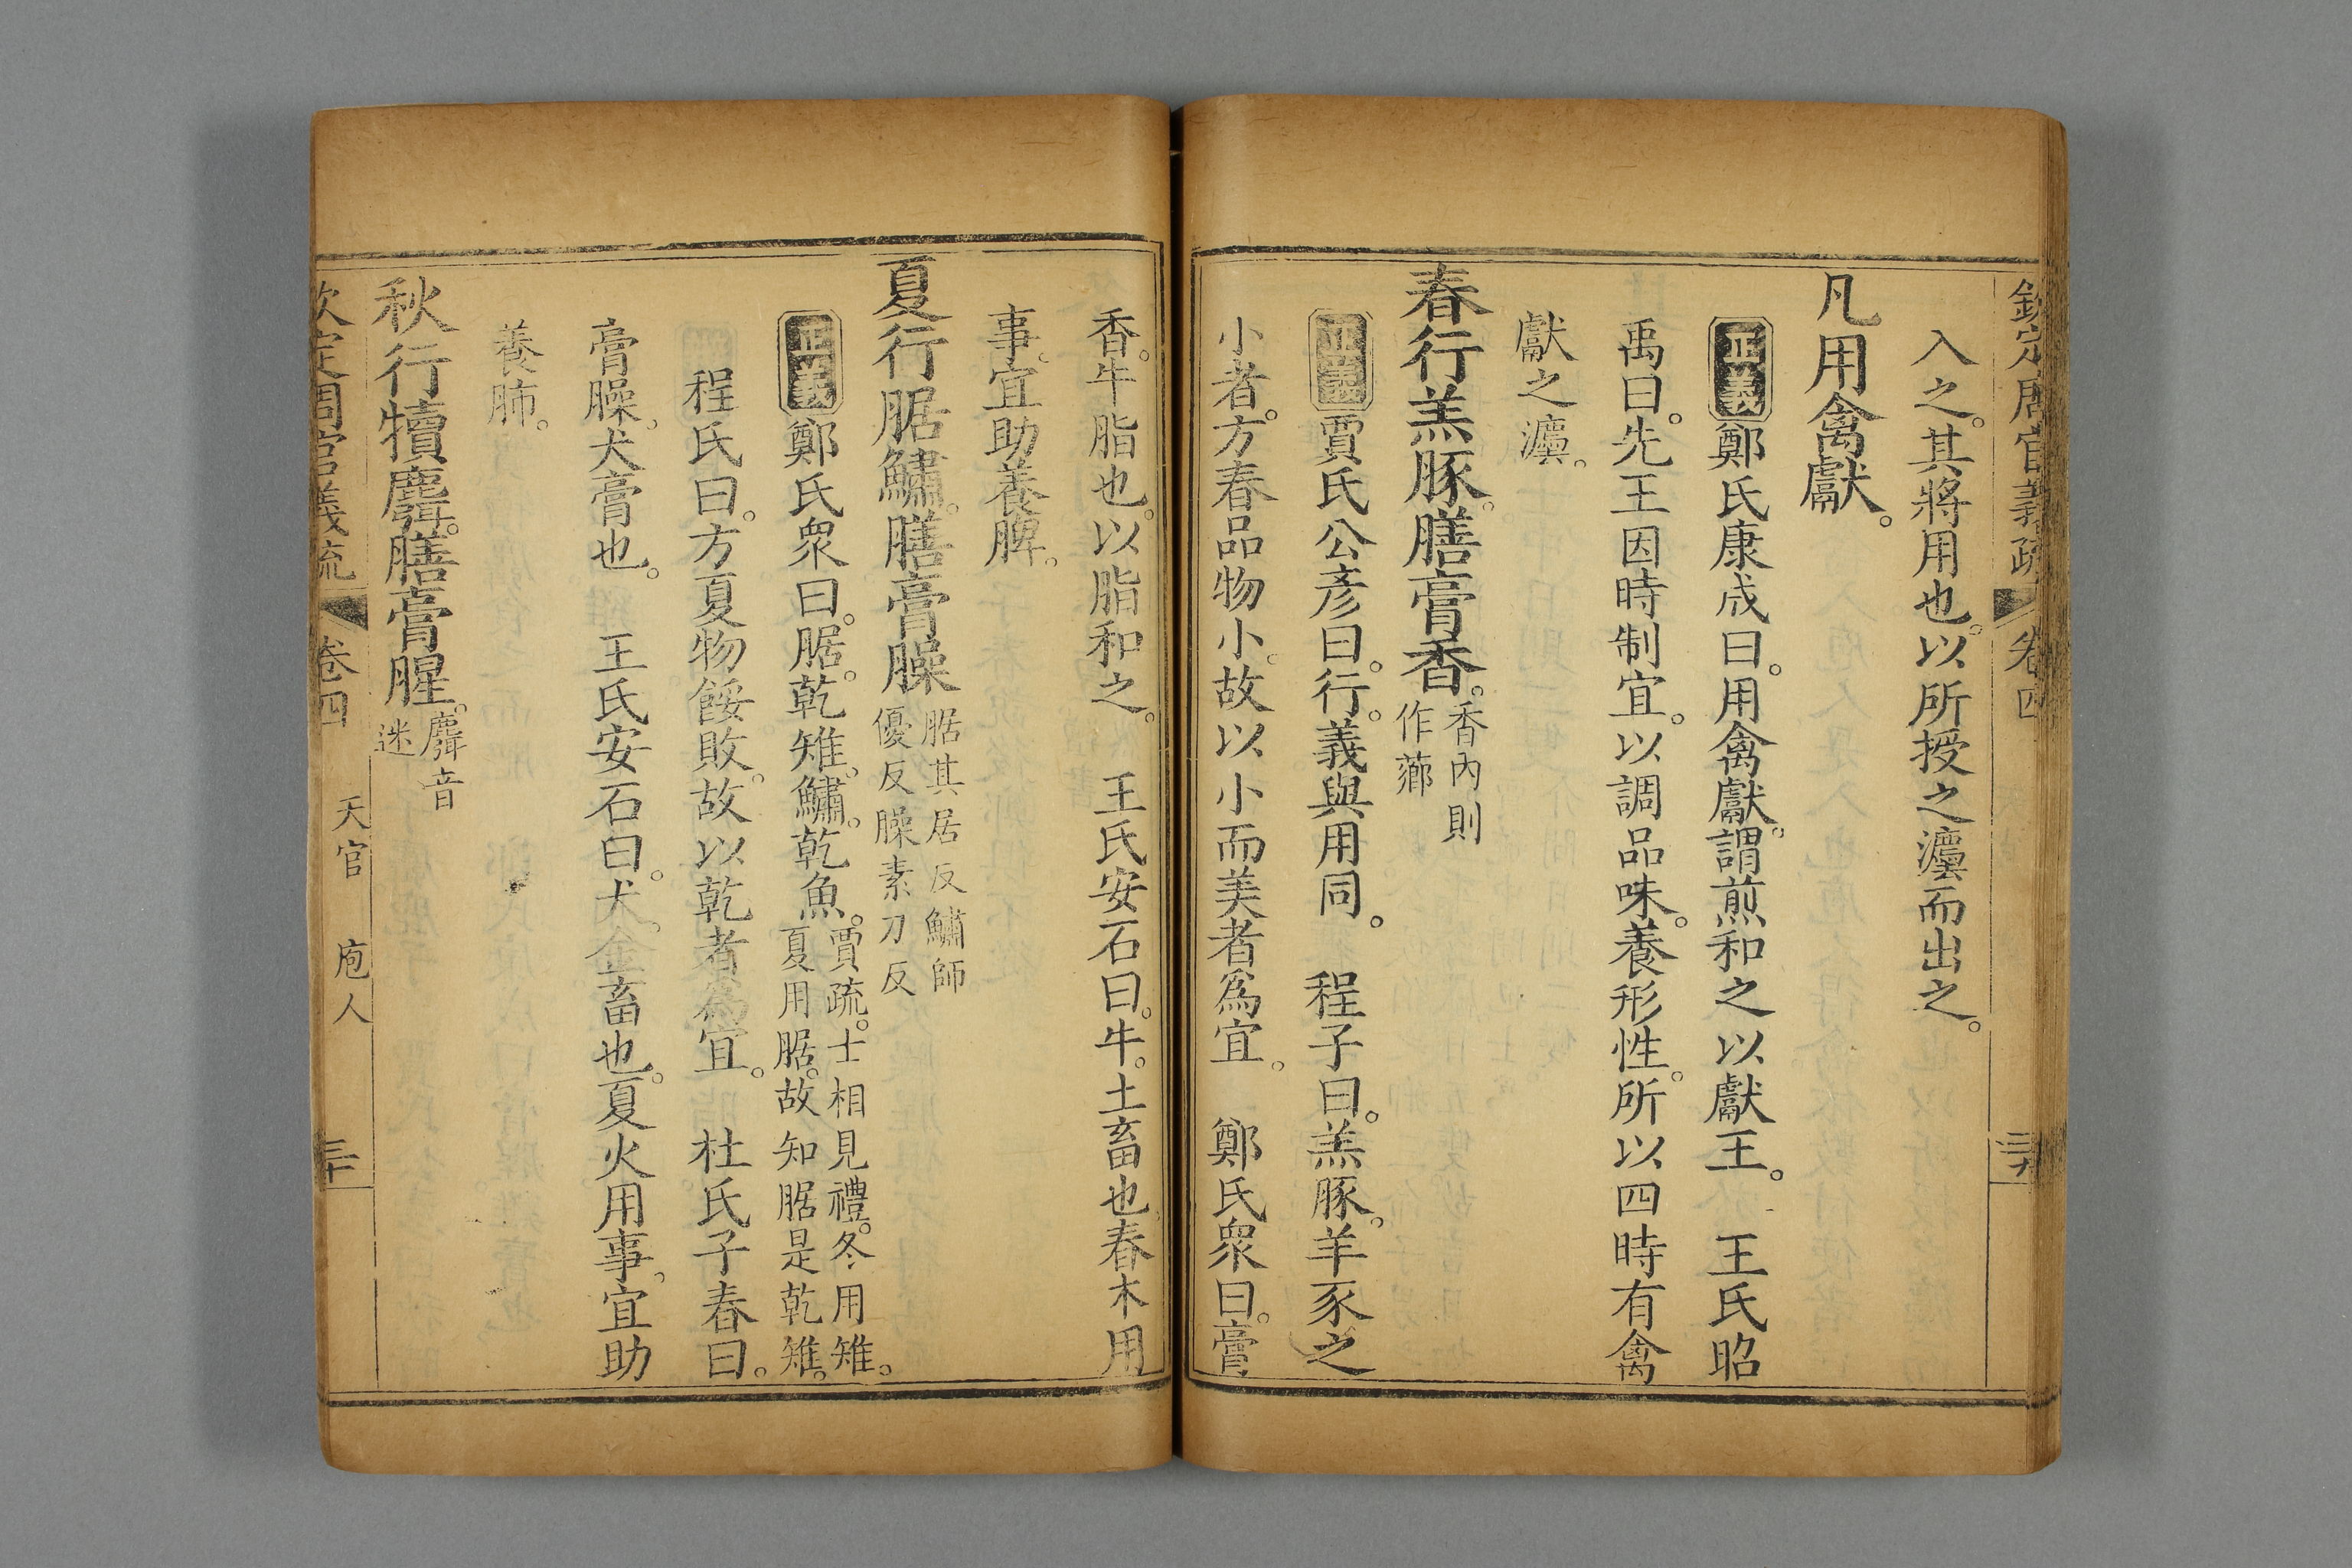 欽定周官義疏 卷四
入之。其將用也。以所授之灋而出之。
凡用禽獻。
正義鄭氏康成曰。用禽獻。謂煎和之以獻王。 王氏昭
禹曰。先王因時制宜。以調品味。養形性。所以四時有禽
獻之灋。
春行羔豚。膳膏香。香內則
作薌
正義賈氏公彥曰。行。義與用同。 程子曰。羔豚。羊豕之
小者。方春品物小。故以小而美者爲宜。 鄭氏衆曰。膏
香。牛脂也。以脂和之。 王氏安石曰。牛。土畜也。春木用
事。宜助養脾。
夏行腒鱐。膳膏臊腒其居反鱐師
優反臊素刀反
正義鄭氏衆曰。腒。乾雉。鱐。乾魚。賈疏。士相見禮。冬用雉。
夏用腒。故知腒是乾雉。
程氏曰。方夏物餒敗。故以乾者爲宜。 杜氏子春曰。
膏臊。犬膏也。 王氏安石曰。犬。金畜也。夏火用事。宜助
養肺。
秋行犢麛。膳膏腥。麛音
迷
欽定周官義疏 卷四 天官 庖人 三十